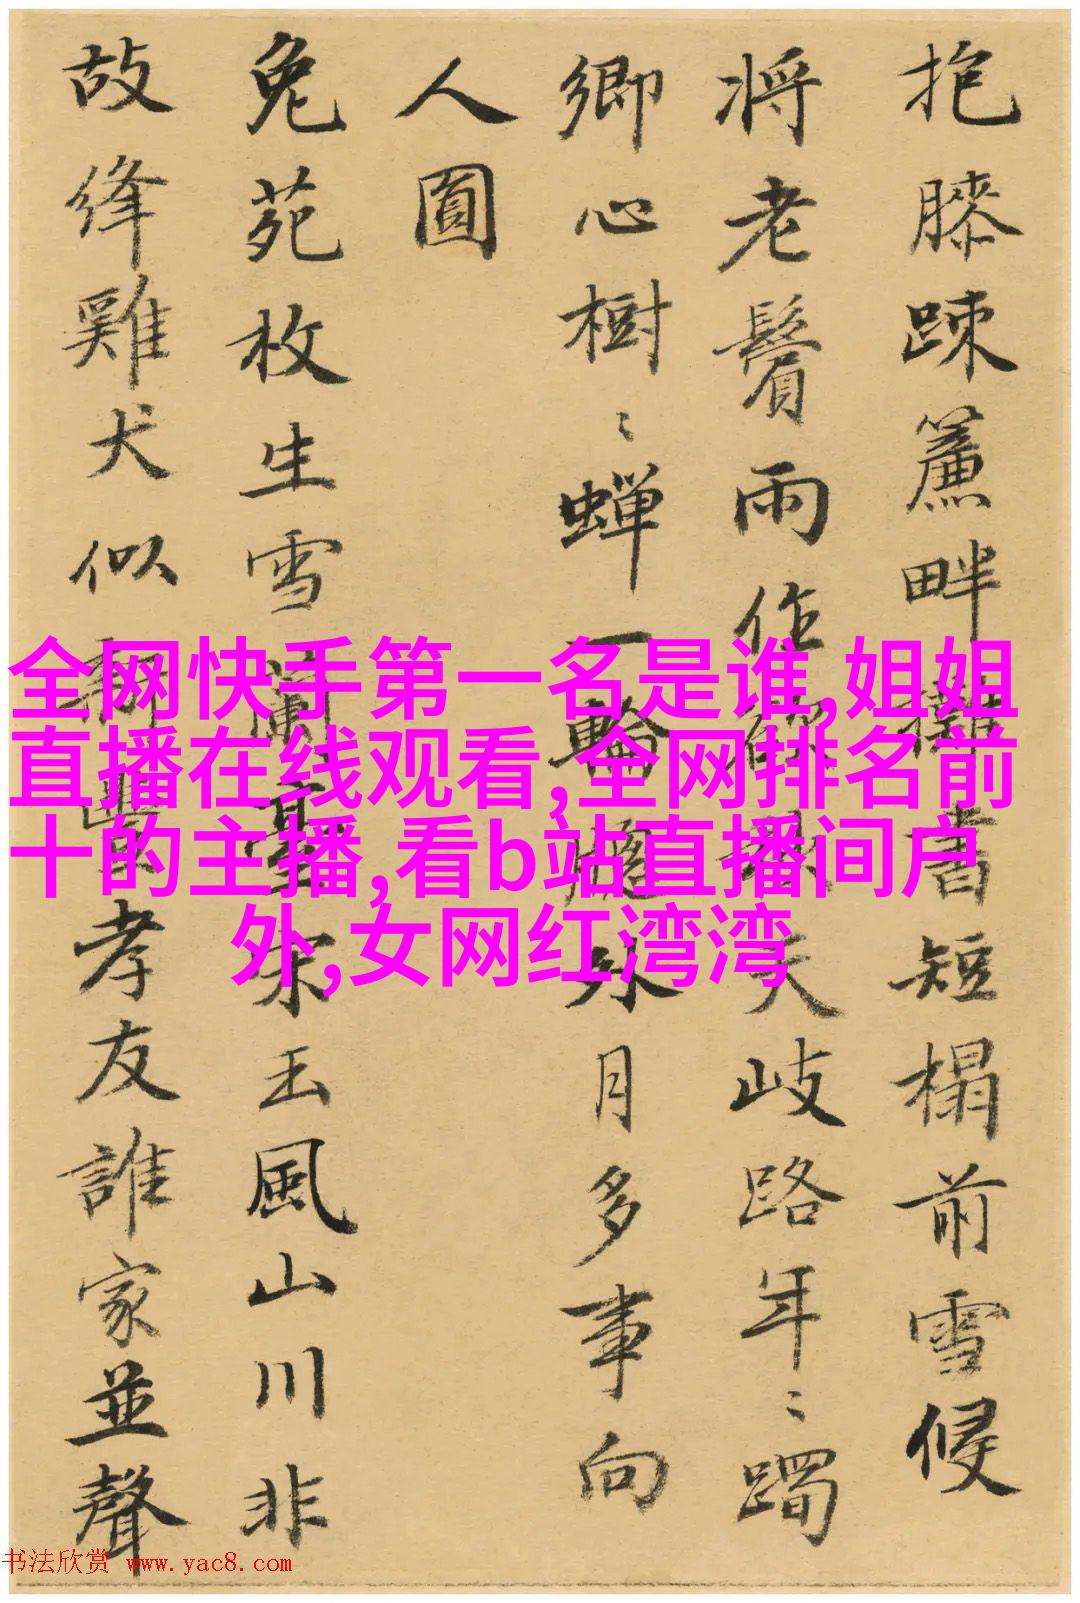 抱膝踈簾畔攤書短榻前雪侵
將老鬢雨作欲秋天岐路年〻躅
鄉心樹〻蟬一輪牕外月多事向
人圓
兔苑枚生雪蘭臺宋玉風山川非
故絳雞犬似新豐孝友誰家並聲
全网快手第一名是谁,姐姐
直播在线观看,全网排名前
十的主播,看b站直播间户
外,女网红湾湾
书法欣赏 www.yac8.com